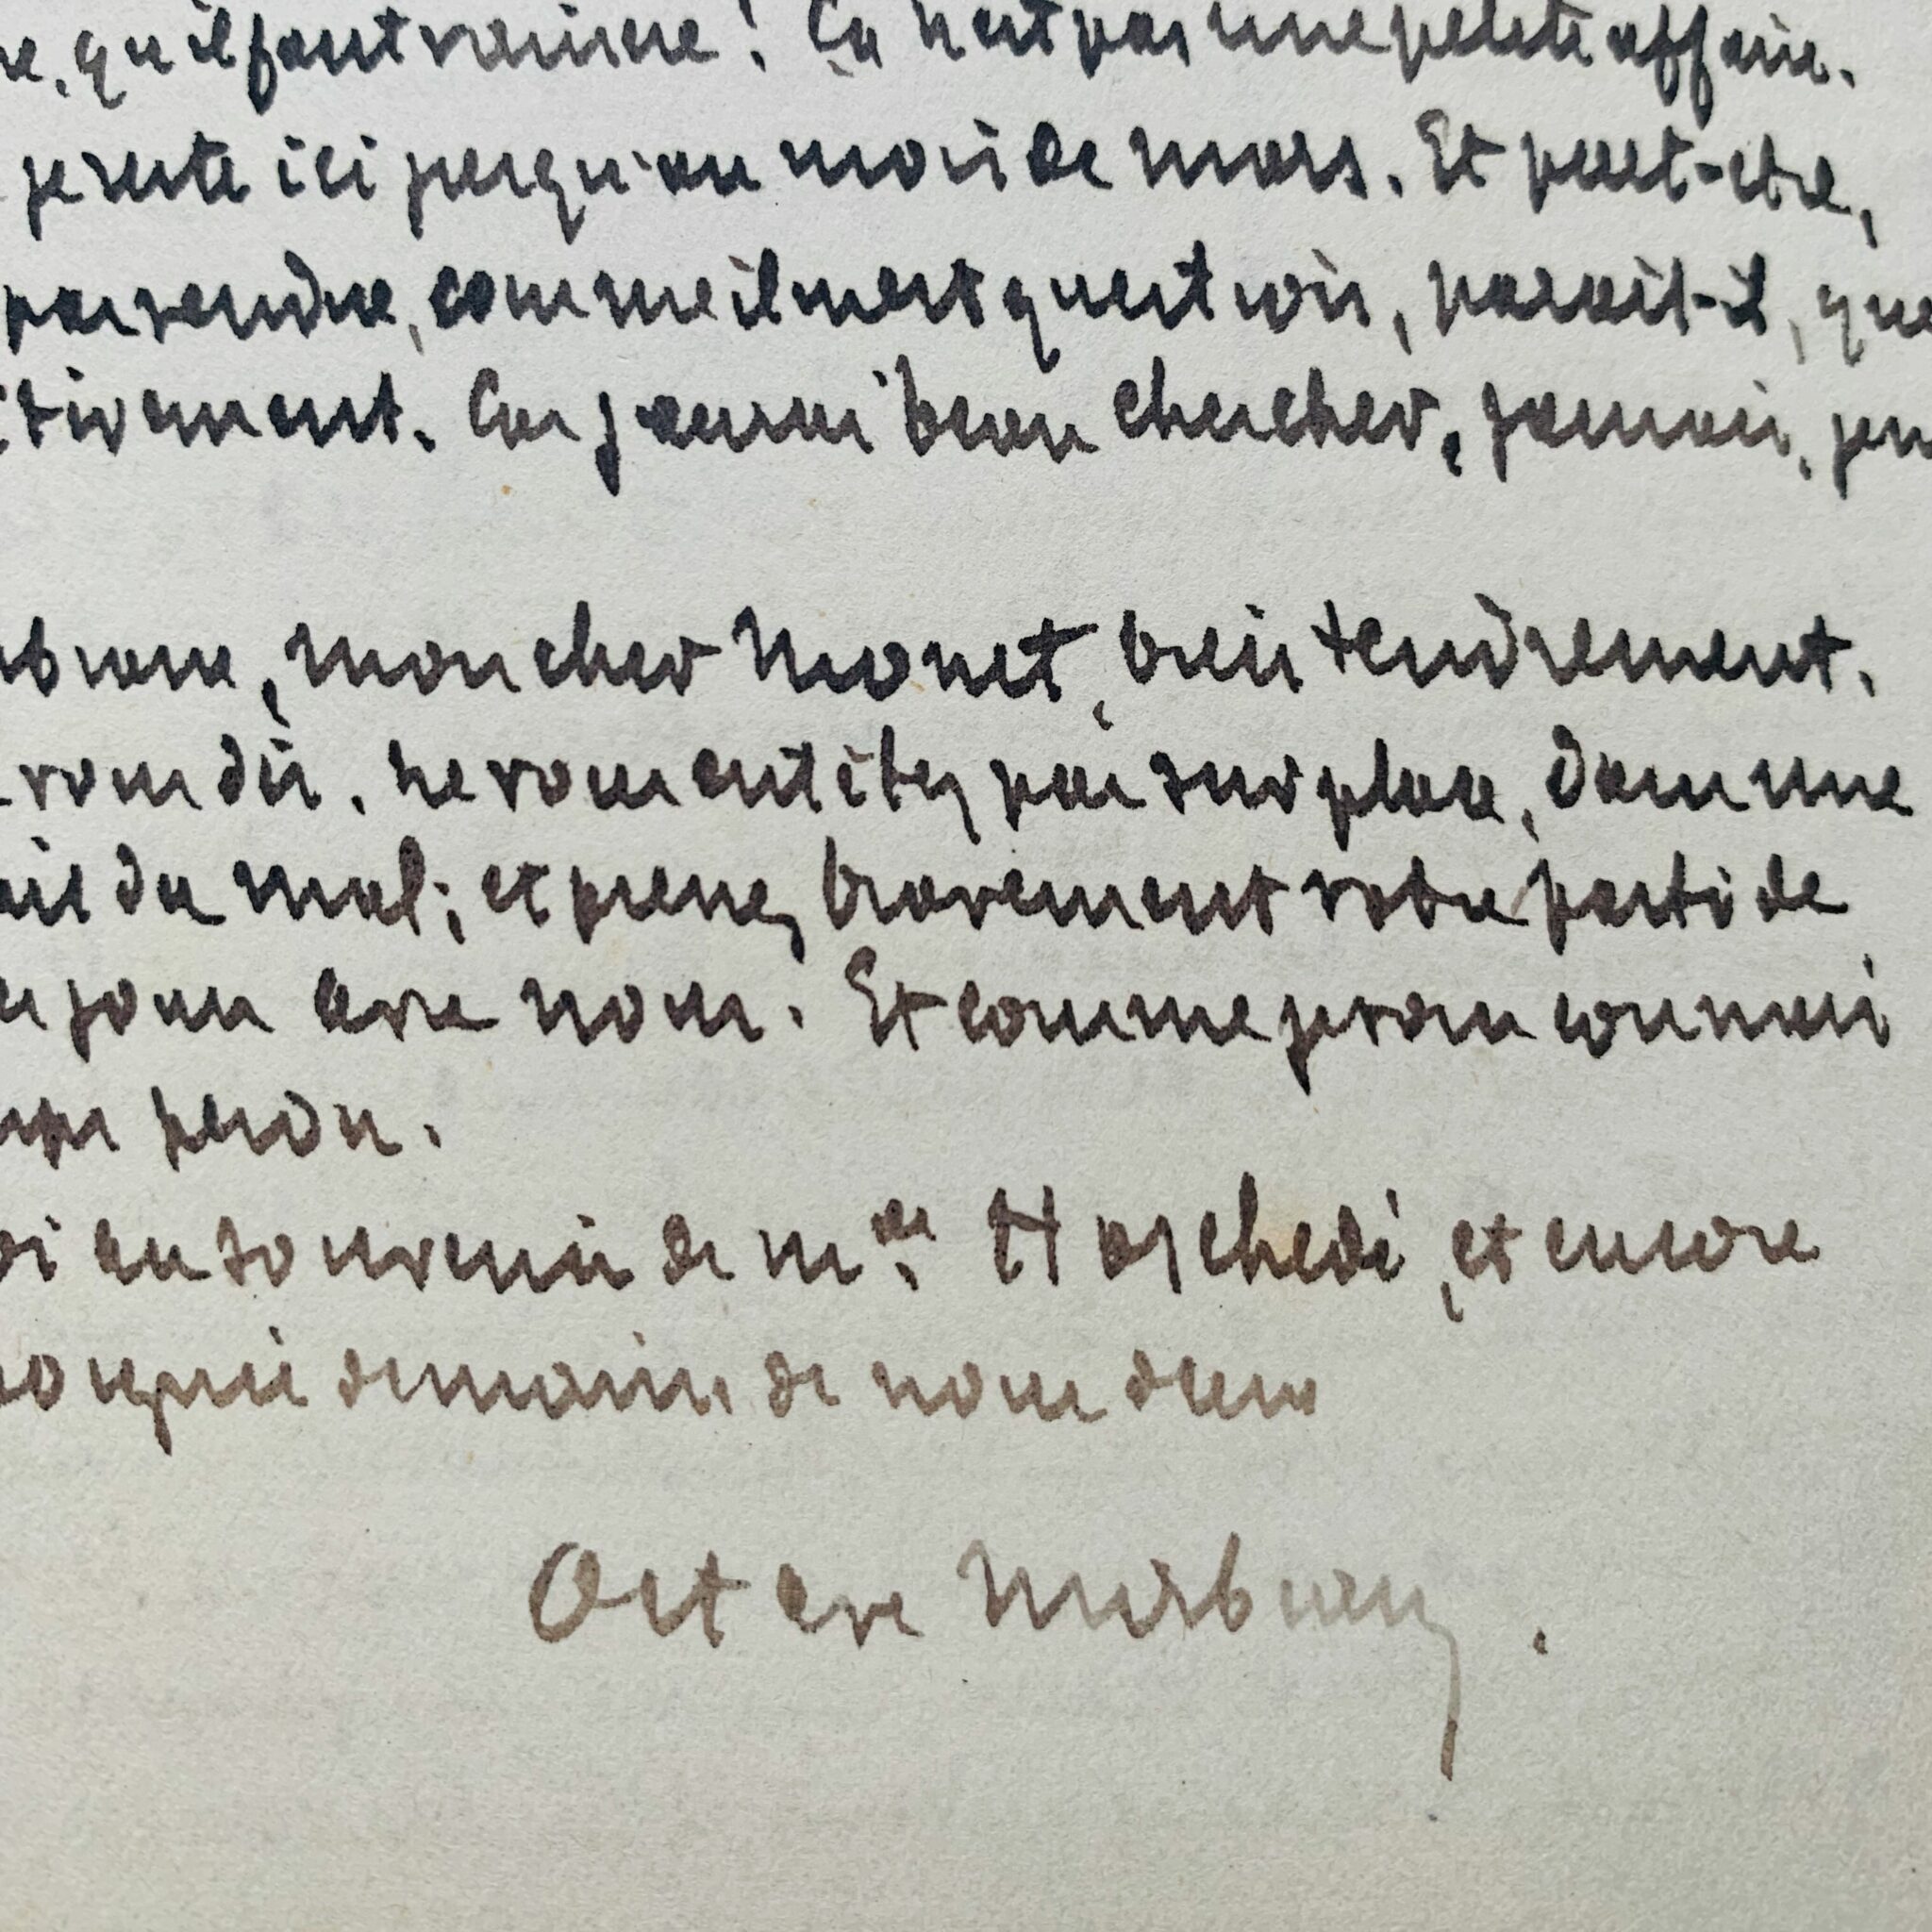 re, qu'il faut vaincre ! Ça n'est pas une petite affaire.
je reste ici jusqu'au mois de mars. Et peut-etre,
comme il m'est qu'est parait-il, que
tivement. Car j'aurai beau chercher, jamais, je n
brasse, mon cher Monet, bien tendrement.
vous dis. Ne vous entêtez pas sur place, dans une
du mal ; et prenez bravement votre parti de
jours avec nous. Et comme je vous connais
mps perdu.
oi au souvenir de Mme. Hoschedé, et encore
poignée de mains de nous deux
Octave Mirbeau.